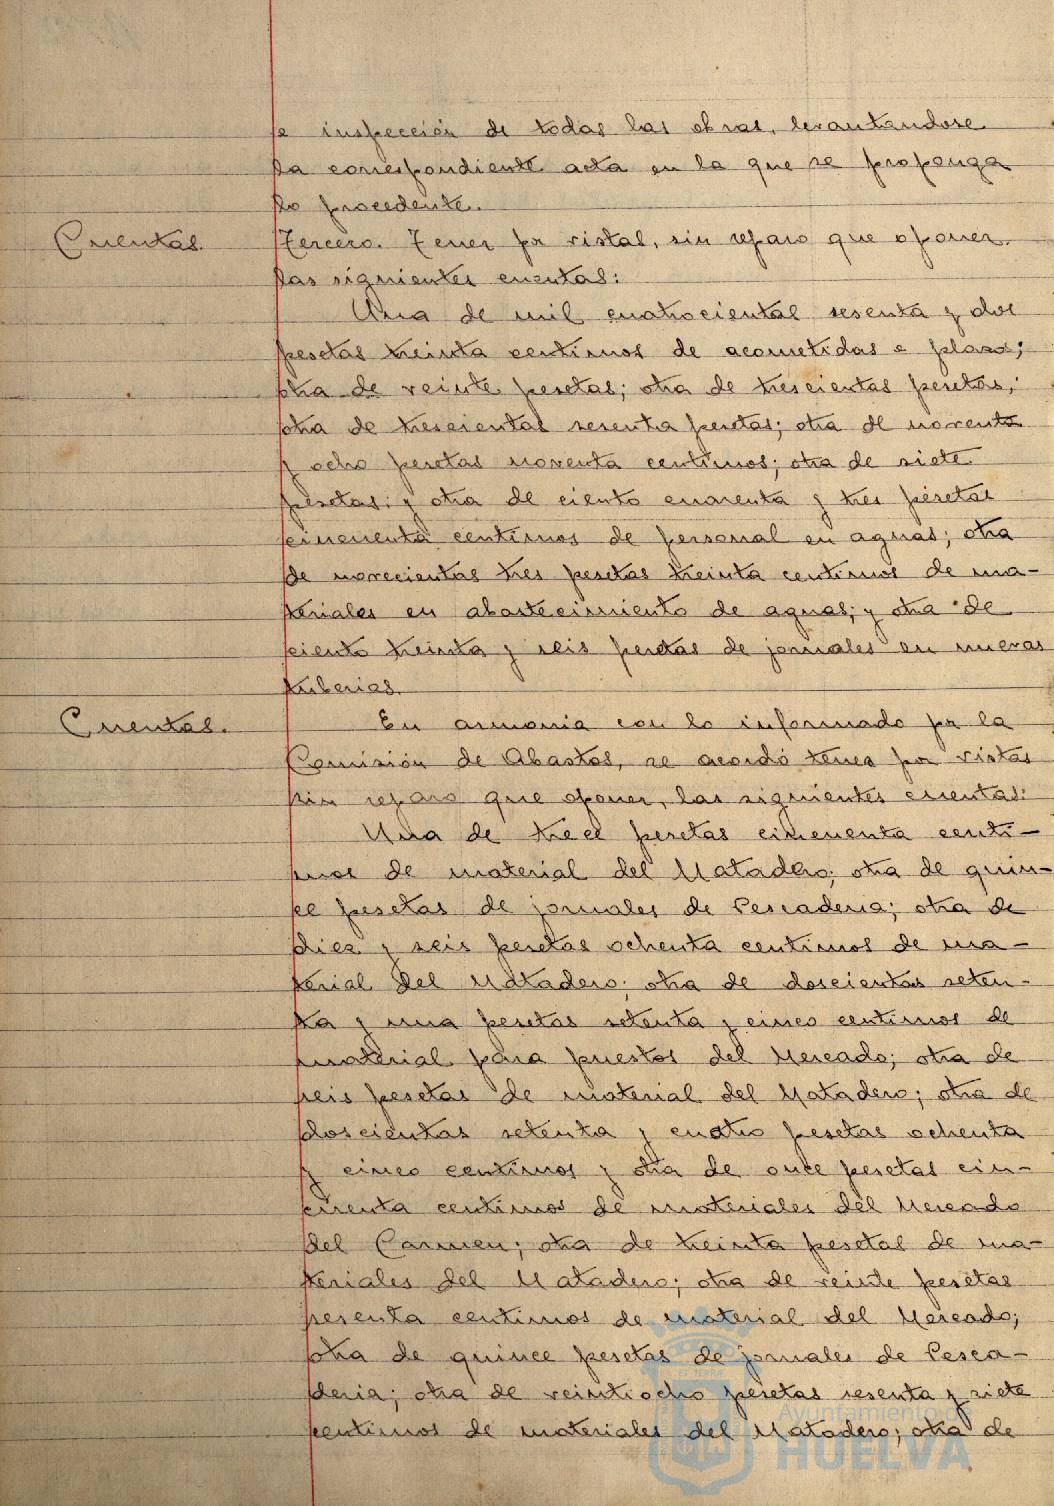 se inspección de todas las obras, levantandose
la correspondiente acta en la que se proponga
lo procedente.
Cuentas.
Tercero. Tener por vistas, sin reparo que oponer,
las siguientes cuentas:
Una de mil cuatrocientas sesenta y dos
pesetas treinta centimos de acometidas a plazos;
otra de veinte pesetas; otra de trescientas pesetas;
otra de trescientas sesenta pesetas; otra de noventa
y ocho pesetas noventa centimos; otra de siete
pesetas; y otra de ciento cuarenta y tres pesetas
cincuenta centimos de personal en aguas; otra
de novecientas tres pesetas treinta centimos de ma-
teriales en abastecimiento de aguas; y otra de
ciento treinta y seis pesetas de jornales en nuevas
tuberias.
Cuentas.
En armonia con lo informado por la
Comisión de Abastos, se acordó tener por vistas
sin reparo que oponer, las siguientes cuentas:
Una de trece pesetas cincuenta centi-
mos de material del Matadero; otra de quin-
ce pesetas de jornales de Pescaderia; otra de
diez y seis pesetas ochenta centimos de ma-
terial del Matadero; otra de doscientas seten-
ta y una pesetas setenta y cinco centimos de
material para puestos del Mercado; otra de
seis pesetas de material del Matadero; otra de
doscientas setenta y cuatro pesetas ochenta
y cinco centimos y otra de once pesetas cin-
cuenta centimos de materiales del Mercado
del Carmen; otra de treinta pesetas de ma-
teriales del Matadero; otra de veinte pesetas
sesenta centimos de material del Mercado;
otra de quince pesetas de jornales de Pesca-
deria; otra de veintiocho pesetas sesenta y siete
centimos de materiales del Matadero; otra de
Ayuntamiento de
HUELVA